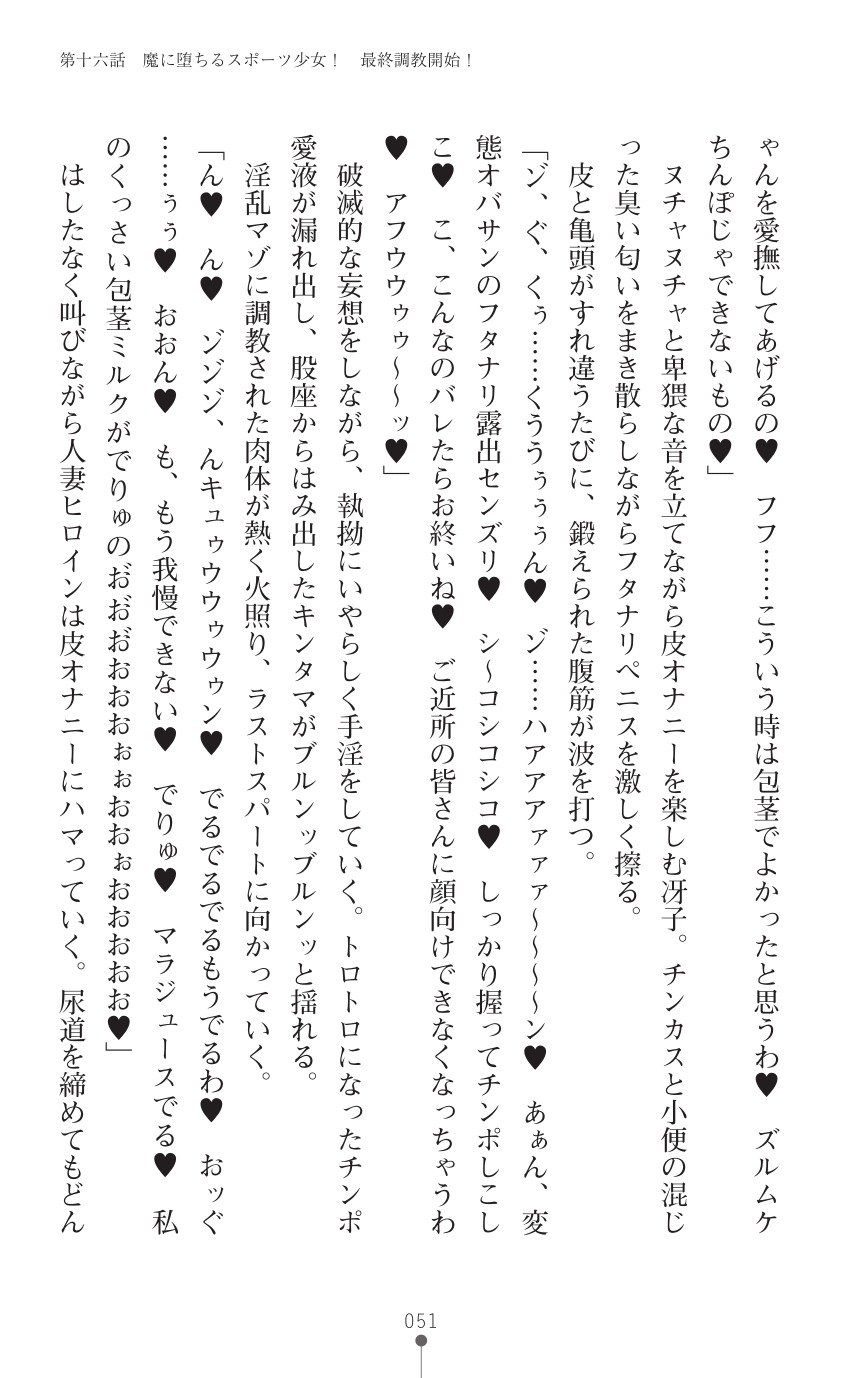 第十六話　魔に堕ちるスポーツ少女！　最終調教開始！
ゃんを愛撫してあげるの♥　フフ……こういう時は包茎でよかったと思うわ♥　ズルムケ
ちんぽじゃできないもの♥」
　ヌチャヌチャと卑猥な音を立てながら皮オナニーを楽しむ冴子。チンカスと小便の混じ
った臭い匂いをまき散らしながらフタナリペニスを激しく擦る。
　皮と亀頭がすれ違うたびに、鍛えられた腹筋が波を打つ。
「ゾ、ぐ、くぅ……くうぅぅぅん♥　ゾ……ハアアアァァァ～～～～ン♥　あぁん、変
態オバサンのフタナリ露出センズリ♥　シ～コシコシコ♥　しっかり握ってチンポしこし
こ♥　こ、こんなのバレたらお終いね♥　ご近所の皆さんに顔向けできなくなっちゃうわ
♥　アフウウゥゥ～～ッ♥」
　破滅的な妄想をしながら、執拗にいやらしく手淫をしていく。トロトロになったチンポ
愛液が漏れ出し、股座からはみ出したキンタマがブルンッブルンッと揺れる。
　淫乱マゾに調教された肉体が熱く火照り、ラストスパートに向かっていく。
「ん♥　ん♥　ゾゾゾ、んキュゥウウゥウゥン♥　でるでるでるもうでるわ♥　おッぐ
……ぅぅ♥　おおん♥　も、もう我慢できない♥　でりゅ♥　マラジュースでる♥　私
のくっさい包茎ミルクがでりゅのお゛お゛お゛おおおぉぉおおぉおおおおお♥」
　はしたなく叫びながら人妻ヒロインは皮オナニーにハマっていく。尿道を締めてもどん
051